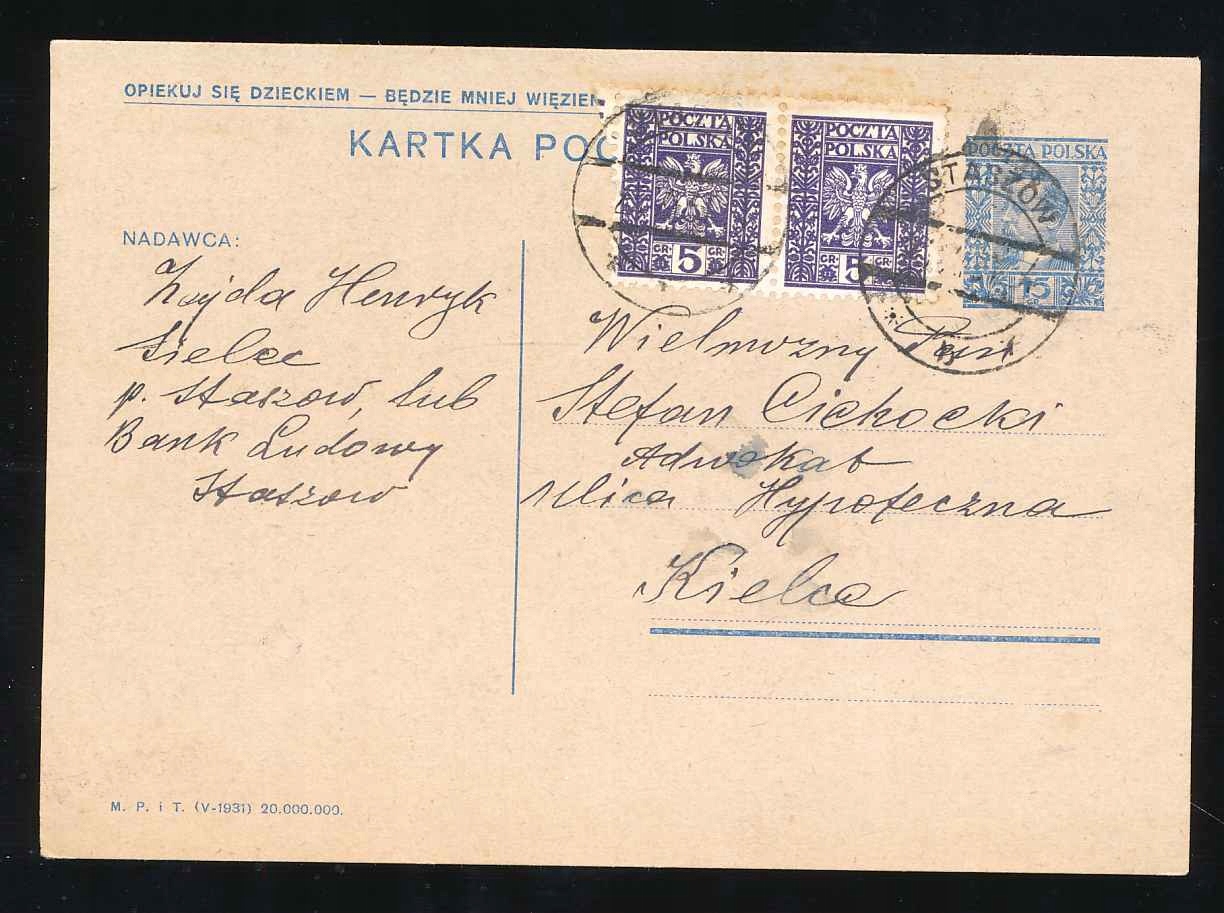 OPIEKUJ SIĘ DZIECKIEM — BĘDZIE MNIEJ WIĘZIEŃ
KARTKA POC
POCZTA POLSKA
5 GR
POCZTA POLSKA
GR 5 GR
POCZTA POLSKA
15
STASZÓW
b
NADAWCA:
Zajda Henryk
Sielec
p. Staszow, lub
Bank Ludowy
Staszow
Wielmozny Pan
Stefan Cichocki
Adwokat
ulica Hypoteczna
Kielce
M. P. i T. (V-1931) 20.000.000.